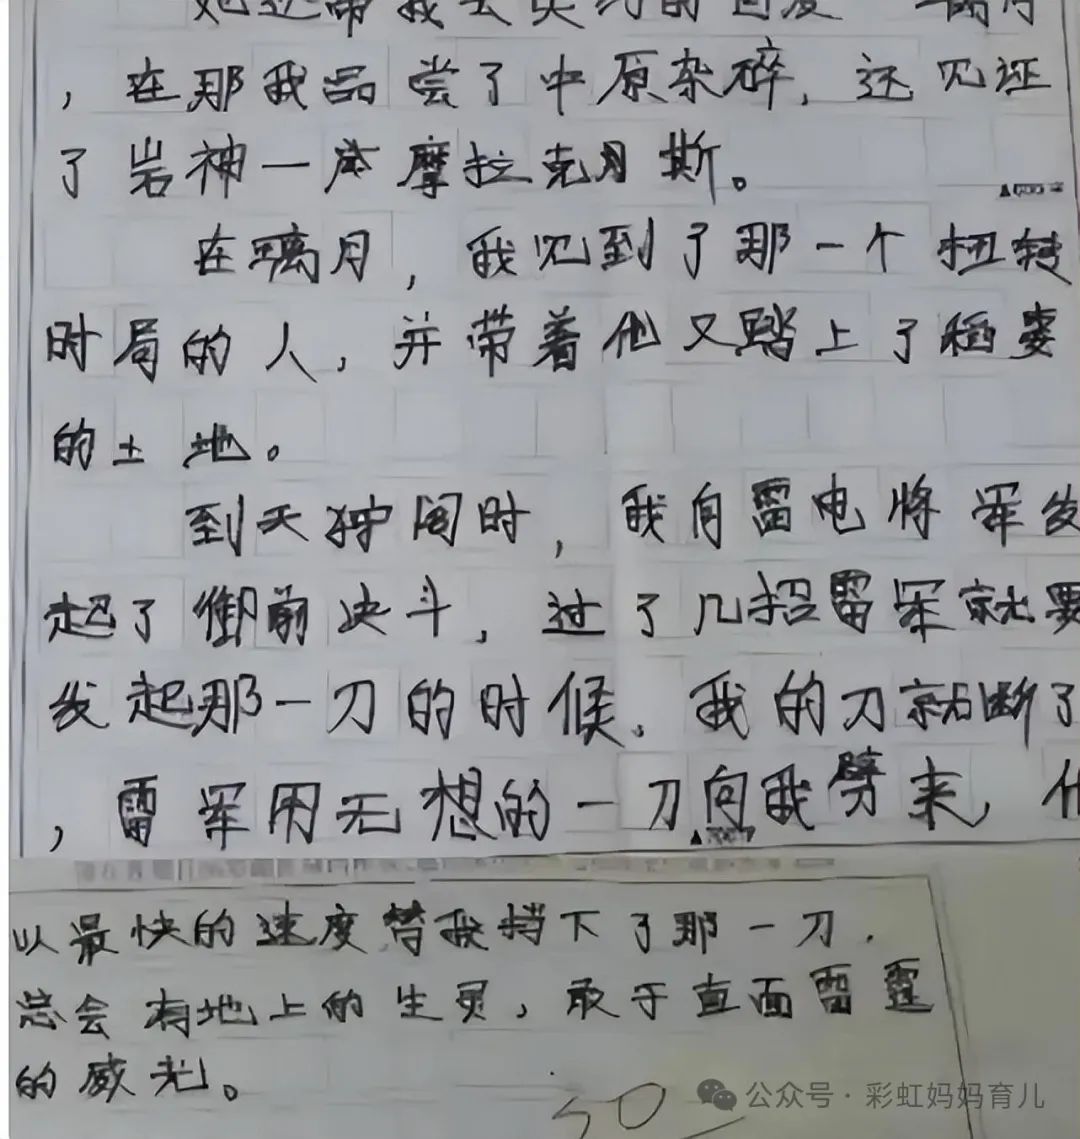 她还带我去契约的国度 璃月
，在那我品尝了中原杂碎，还见证
了岩神一座摩拉克月斯。
▲600
在璃月，我见到了那一个扭转
时局的人，并带着他又踏上了稻妻
的土地。
到天守阁时，我向雷电将军发
起了御前决斗，过了几招雷军就要
发起那一刀的时候，我的刀就断了
，雷军用无想的一刀向我劈来，他
以最快的速度替我挡下了那一刀，
总会有地上的生灵，敢于直面雷霆
的威光。
50
公众号·彩虹妈妈育儿